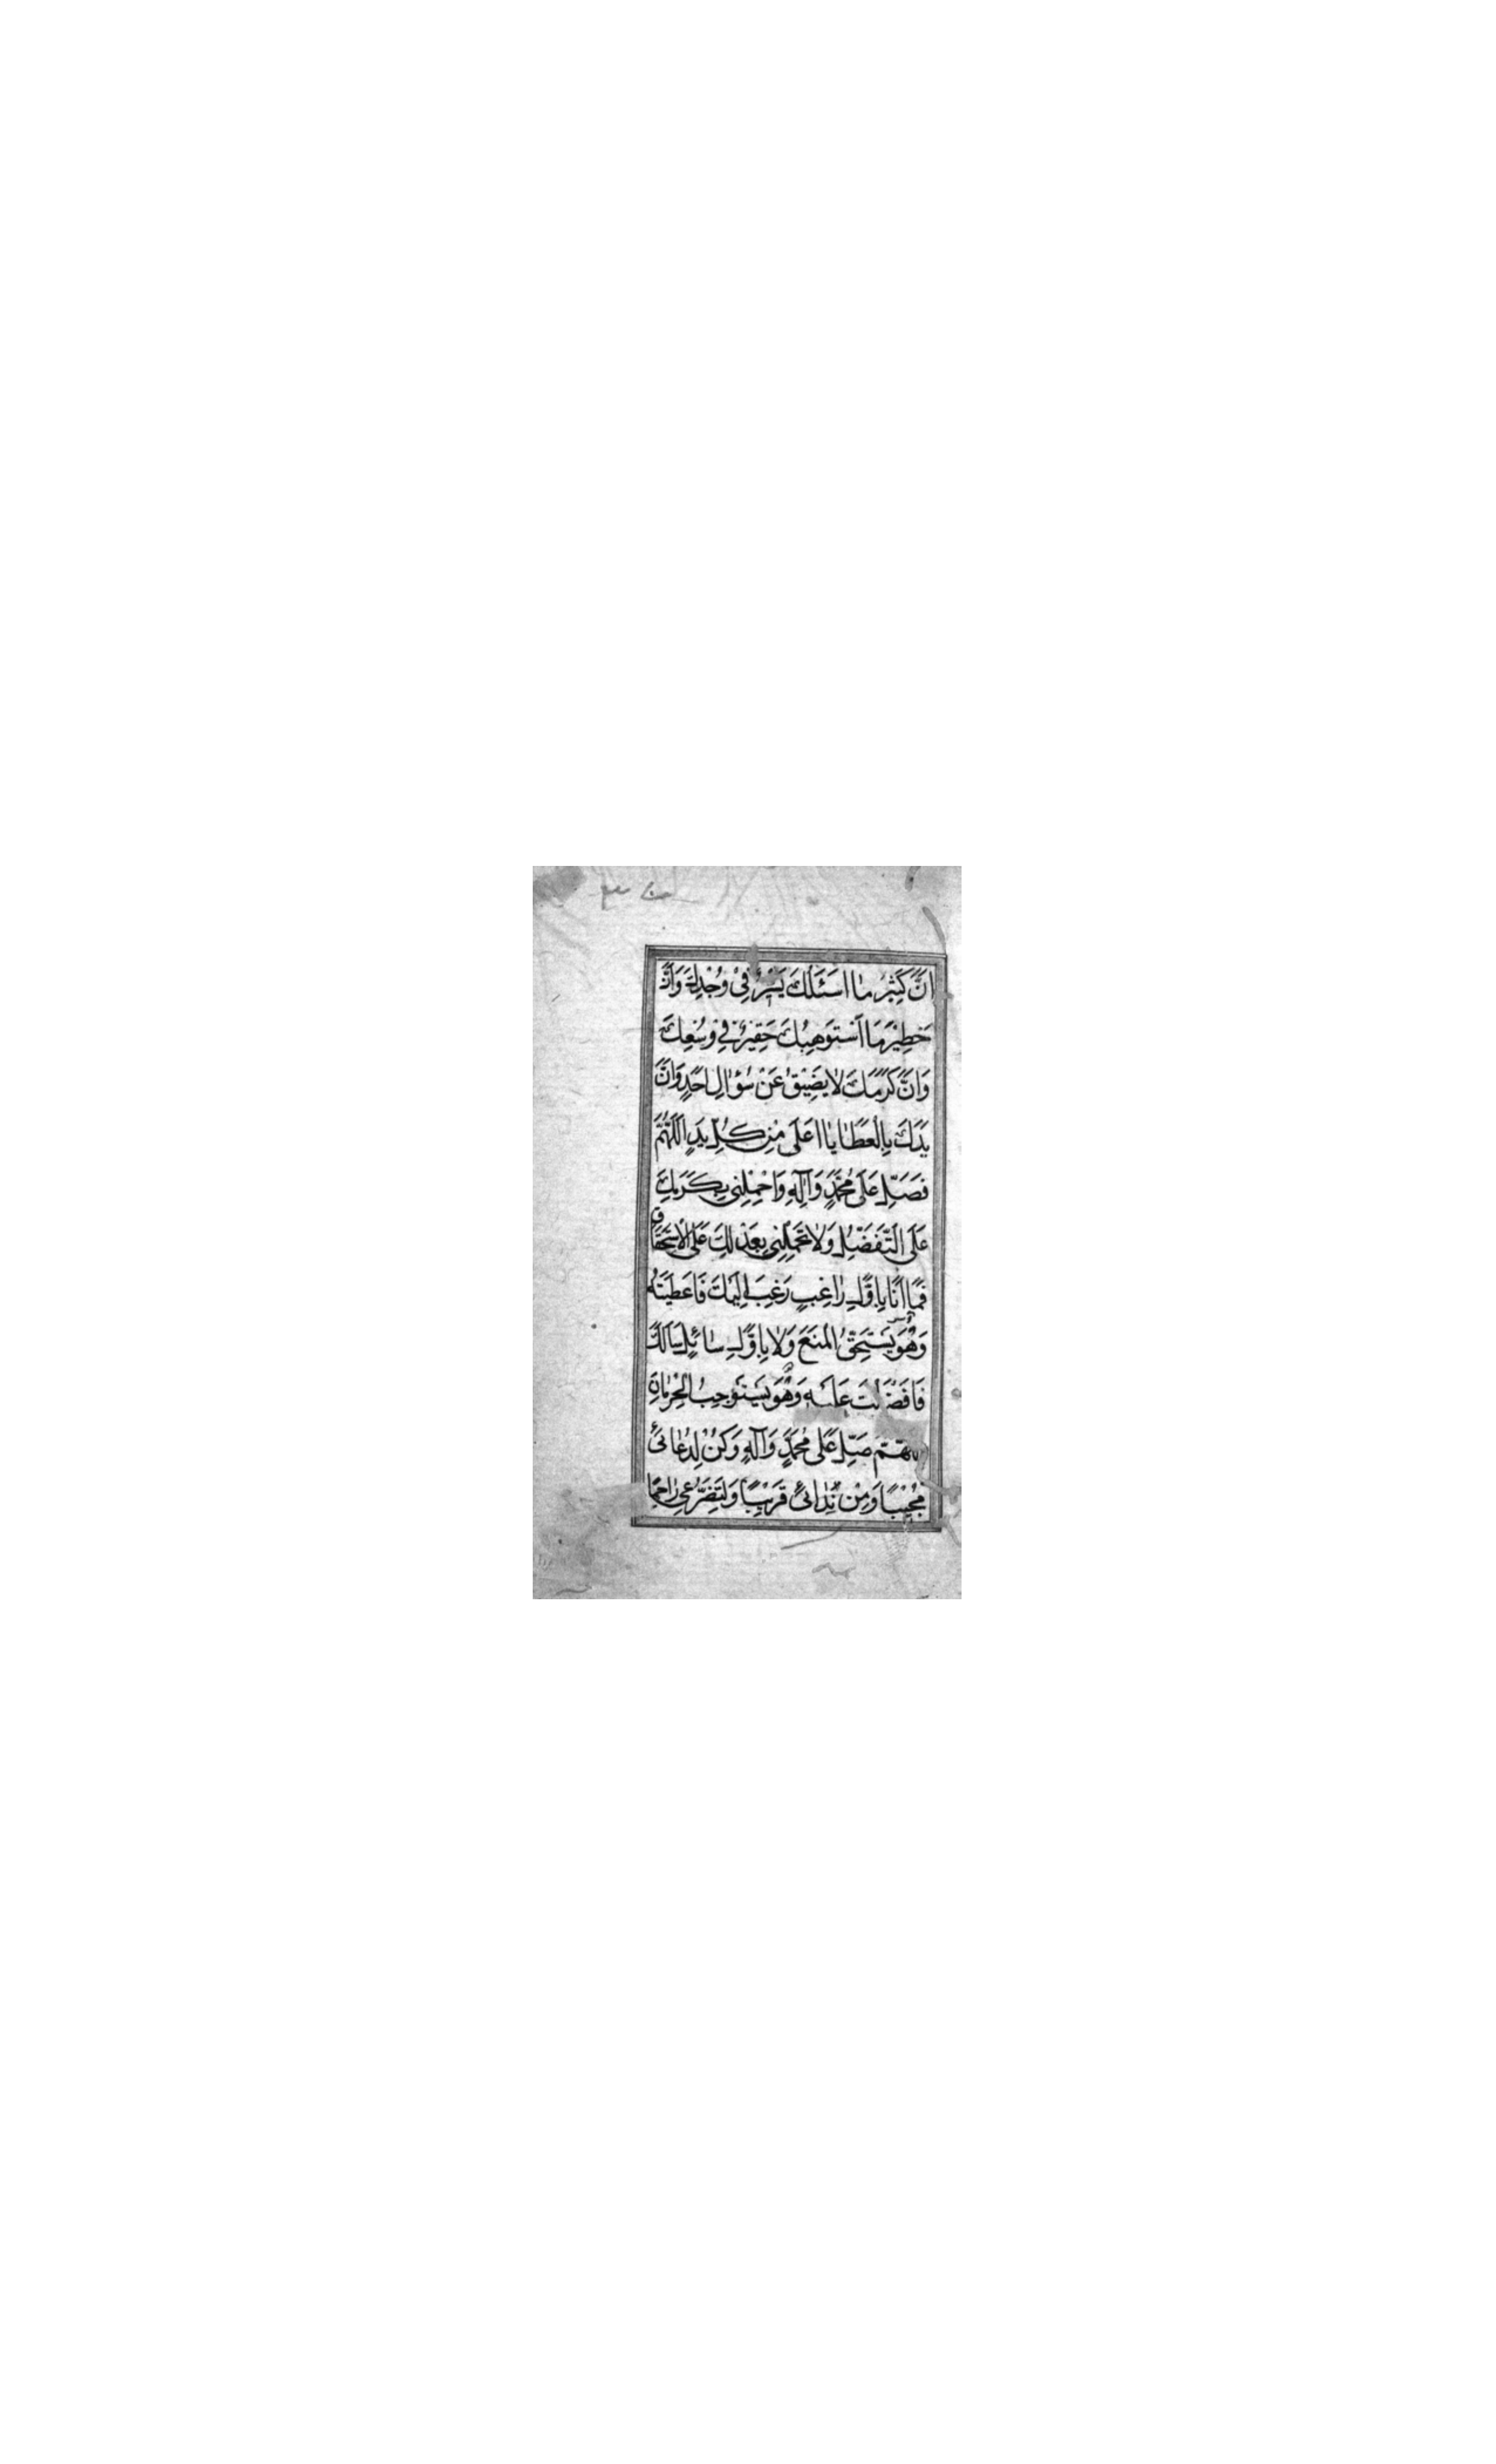 اِنَّ كَثِيْرَ مٰا اَسْئَلُكَ يَسِيْرٌ فِيْ وُجْدِكَ وَاَنَّ
خَطِيْرَ مَا اَسْتَوْهِبُكَ حَقِيْرٌ فِيْ وُسْعِكَ
وَاَنَّ كَرَمَكَ لٰا يَضِيْقُ عَنْ سُؤٰالِ اَحَدٍ وَاَنَّ
يَدَكَ بِالْعَطٰايٰا اَعْلَى مِنْ كُلِّ يَدٍ اَللّٰهُمَّ
فَصَلِّ عَلَى مُحَمَّدٍ وَآلِهِ وَاحْمِلْنِي بِكَرَمِكَ
عَلَى التَّفَضُّلِ وَلٰا تَحْمِلْنِي بِعَدْلِكَ عَلَى الْاِسْتِحْقٰاقِ
فَمٰا اَنَا بِاَوَّلِ رٰاغِبٍ رَغِبَ اِلَيْكَ فَاَعْطَيْتَهُ
وَهُوَ يَسْتَحِقُّ الْمَنْعَ وَلٰا بِاَوَّلِ سٰائِلٍ سَاَلَكَ
فَاَفْضَلْتَ عَلَيْهِ وَهُوَ يَسْتَوْجِبُ الْحِرْمٰانَ
اللهم صَلِّ عَلَى مُحَمَّدٍ وَآلِهِ وَكُنْ لِدُعٰائِي
مُجِيْبًا وَمِنْ نِدٰائِي قَرِيْبًا وَلِتَضَرُّعِي رٰاحِمًا